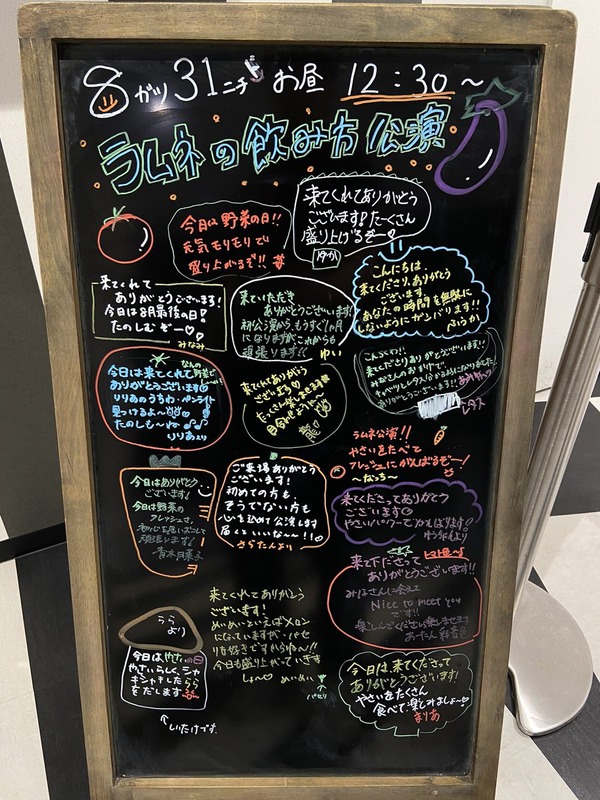 8ガツ31ニチ お昼 12:30～
ラムネの飲み方 公演
今日は野菜の日!!
元気モリモリで
盛り上がるぞ!!
来てくれてありがとう
ございます! たーくさん
盛り上げるぞー♡
ゆか
こんにちは
来てくださり、ありがとう
ございます。
あなたの時間を無駄に
しないようにガンバリます!!
ふうか
来てくれて
ありがとうございます!
今日は8月最後の日!
たのしむぞー♡♡
みなみ
来ていただき
ありがとうございます!
初公演から、もうすぐ1ヶ月
になりますが、これからも
頑張ります!!
ゆい
来てくださりありがとうございます!!
レタス
今日は来てくれて
なんの
野菜で
ありがとうございます♡
りりあのうちわ・ペンライト
見つけるよ～
たのしも～ね♪♪
りりあより
来てくれてありがとう
ラムネ公演!!
やさいをたべて
フレッシュにがんばるぞー!
～なっち～
今日はありがとう
ございます!
今日は野菜の
フレッシュさ、
頑張ります!
青木日菜子
ご来場ありがとう
ございます!
初めての方も、
そうでない方も
心を込めて公演します
届くといいな～!!♡
さらたんより
来てくださってありがとう
ございます♡
やさいパワーでがんばります!
来て下さって
トマト君～!
ありがとうございます!!
Nice to meet you
です!!
うら
より
今日はやさいの日
やさいらしく、シャ
キシャキしたうら
をだします
↑しいたけです。
来てくれてありがとう
ございます!
めいめいといえばメロン
になっていますが、パセ
リも好きですからね～!!
今日も盛り上がっていきま
しょ～♡ めいめい
↑パセリ
今日は来てくださって
ありがとうございます!
やさいをたくさん
食べて楽しみましょ～♡
まりあ